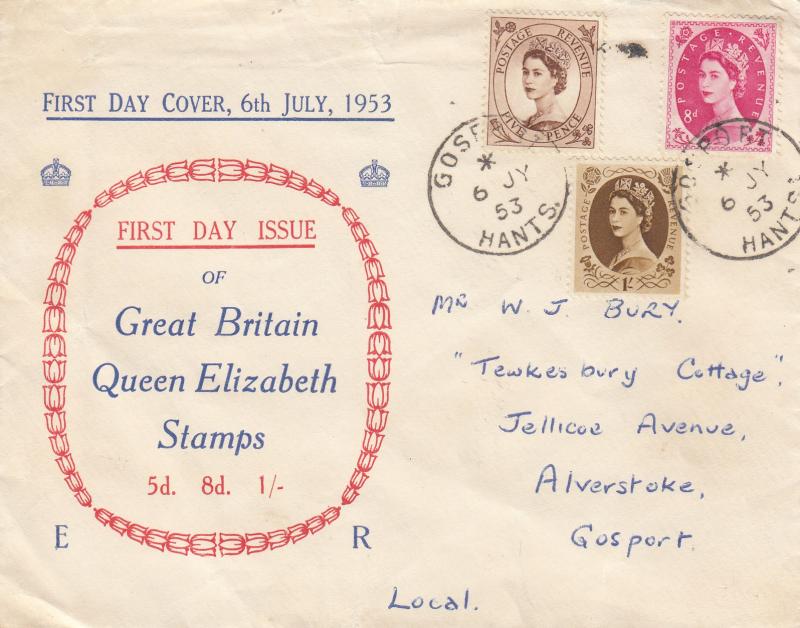 FIRST DAY COVER, 6th JULY, 1953
FIRST DAY ISSUE
OF
Great Britain
Queen Elizabeth
Stamps
5d. 8d. 1/-
E R
POSTAGE REVENUE
FIVE PENCE
POSTAGE REVENUE
8d
POSTAGE REVENUE
1/-
* 
6 JY
53
HANTS.
GOSPORT
*
6 JY
53
HANTS.
Mr W. J. BURY.
"Tewkesbury Cottage",
Jellicoe Avenue,
Alverstoke,
Gosport.
Local.